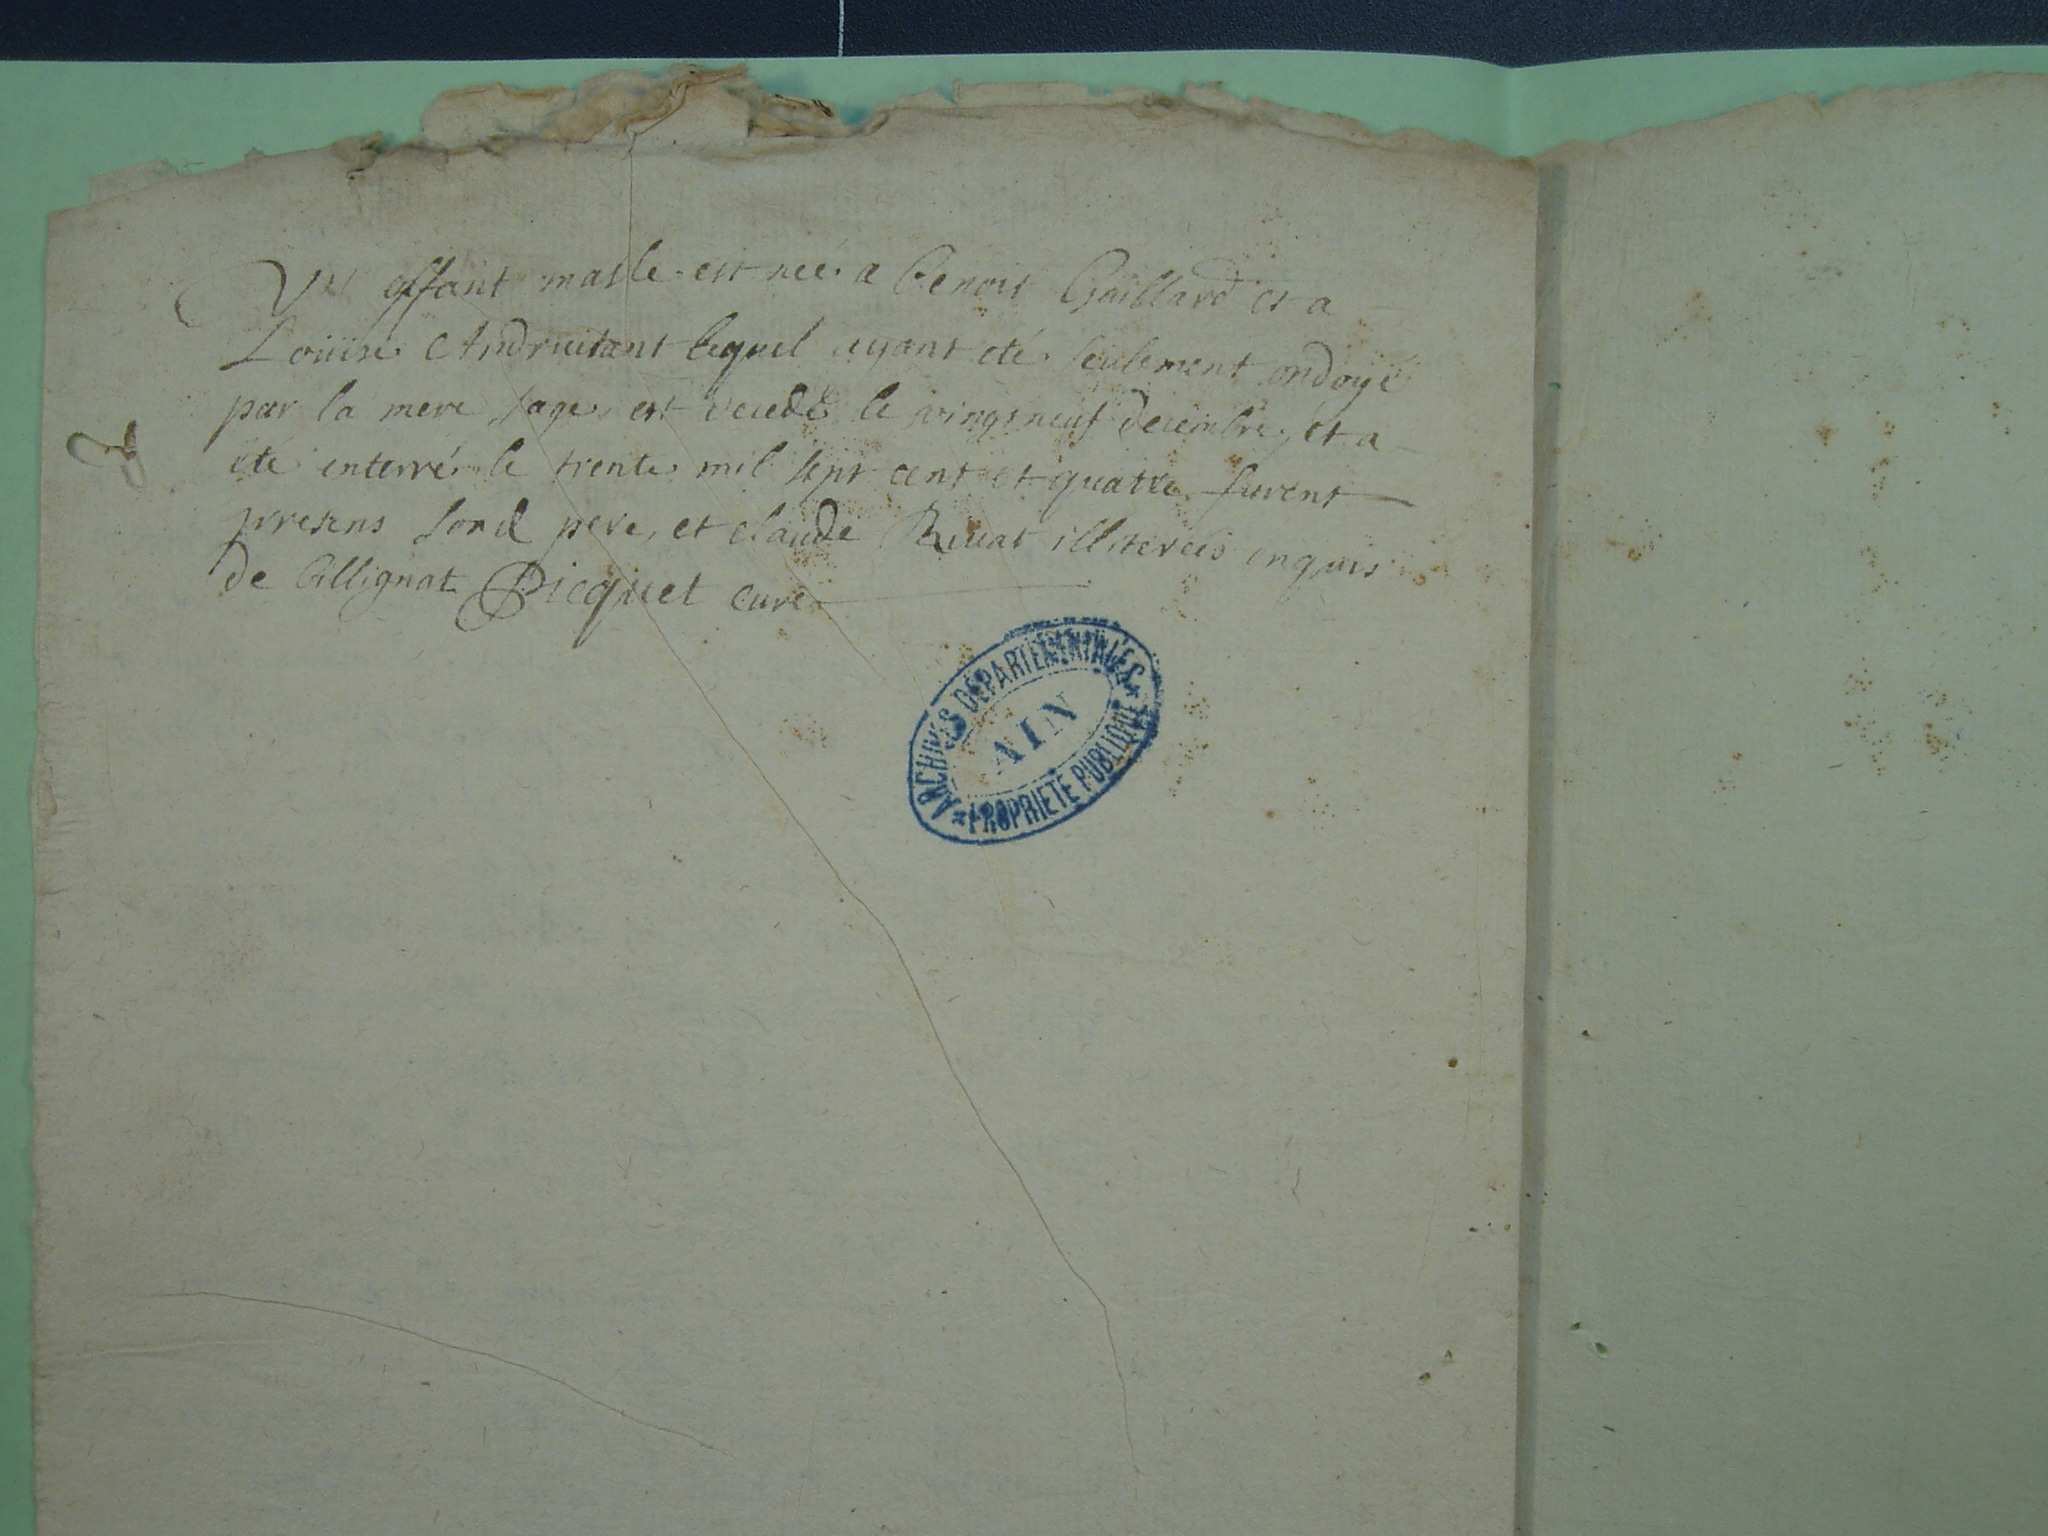 Un effant masle est neé a benoit Gaillard et a
Louïse Andruitant lequel ayant eté seulement ondoyé
par la mere sage est decedé le vingt neuf decembre, et a
eté enterré le trente mil sept cent et quatre furent
presens sond pere, et claude Rivat illiterés enquis
de Allignat Picquet curé
ARCHIVES DÉPARTEMENTALES
AIN
PROPRIÉTÉ PUBLIQUE